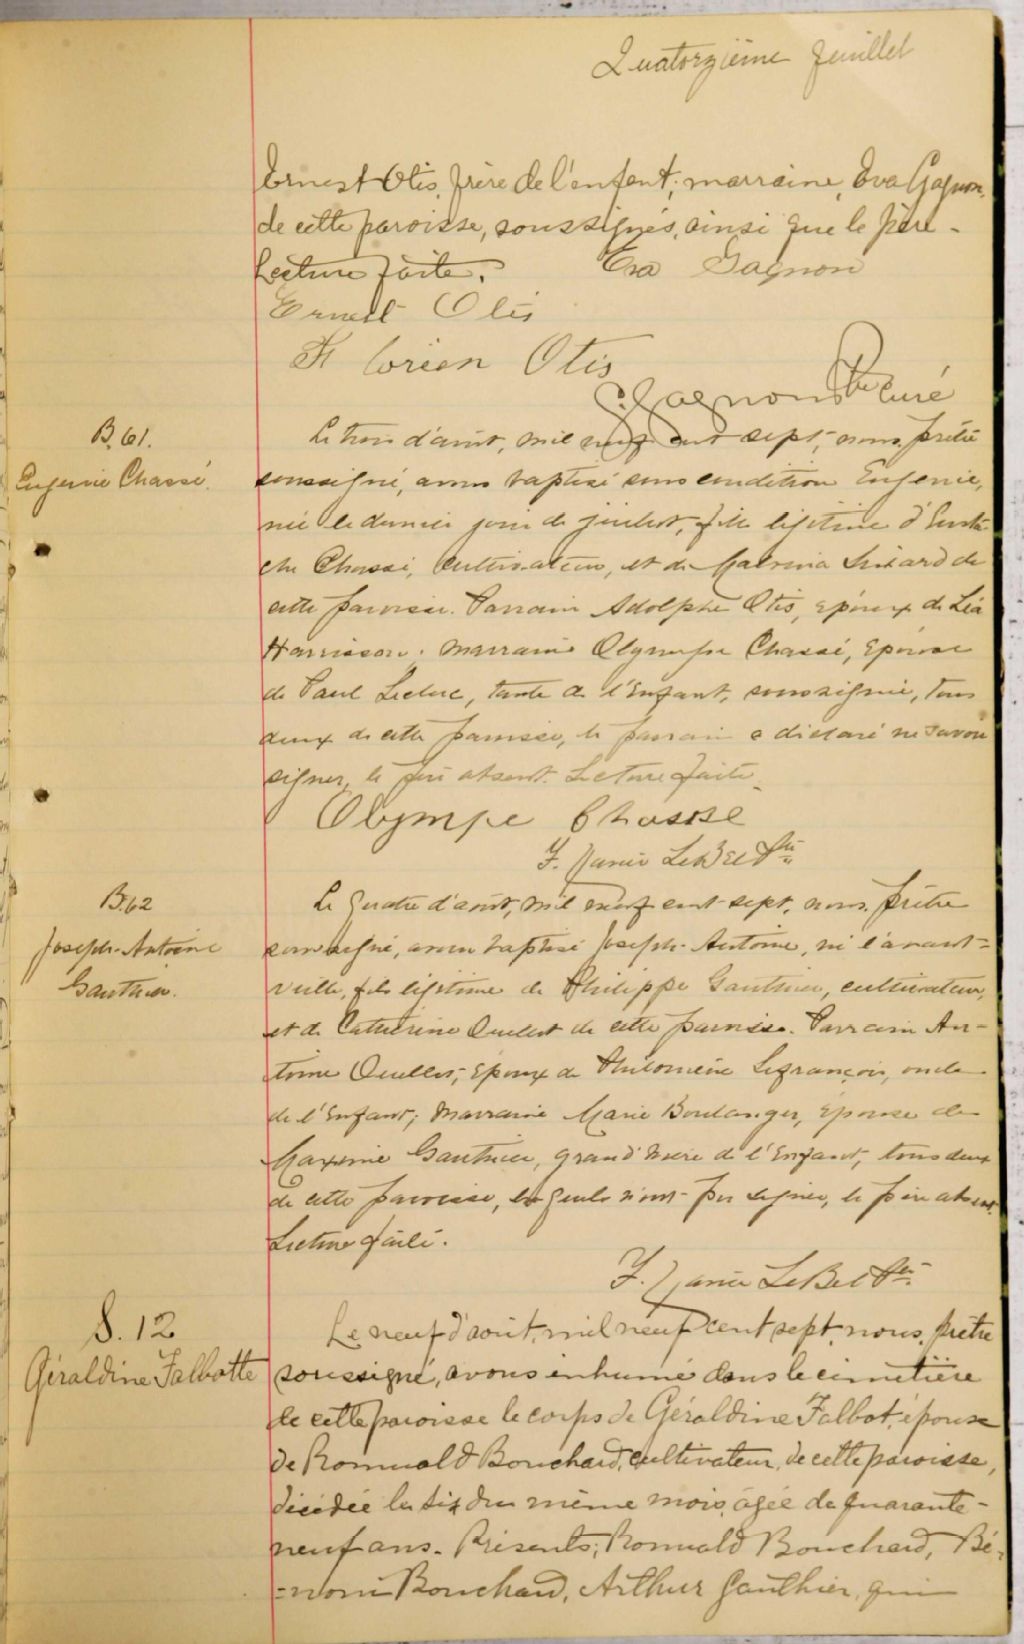 Quatorzième feuillet
Ernest Otis, frère de l'enfant; marraine, Eva Gagnon,
de cette paroisse, soussignés, ainsi que le père -
Lecture faite. Eva Gagnon
Ernest Otis
Florien Otis
Gagnon Ptre curé
B. 61.
Eugenie Chassé.
Le trois d'août, mil neuf cent sept, nous, prêtre
soussigné, avons baptisé sous condition Eugenie,
née le dernier jour de juillet, fille légitime d'Eusta-
che Chassé, cultivateur, et de Malvina de
cette paroisse. Parrain Adolphe Otis, époux de Léa
Harrisson; marraine Olympe Chassé, épouse
de Paul Leclerc, tante de l'enfant, soussignée, tous
deux de cette paroisse, le parrain a déclaré ne savoir
signer, le père absent. Lecture faite.
Olympe Chasse
LeBel Ptre
B.62
Joseph-Antoine
Gauthier.
Le quatre d'août, mil neuf cent sept, nous, prêtre
soussigné, avons baptisé Joseph-Antoine, né l'avant-
veille, fils légitime de Philippe Gauthier, cultivateur,
et de Catherine Ouellet de cette paroisse. Parrain An-
toine Ouellet, époux de Philomène Lefrançois, oncle
de l'enfant; marraine Marie Boulanger, épouse de
Maxime Gauthier, grand'mère de l'enfant, tous deux
de cette paroisse, lesquels n'ont pu signer, le père absent.
Lecture faite.
LeBel Ptre
S. 12
Géraldine Talbotte
Le neuf d'août, mil neuf cent sept, nous, prêtre
soussigné, avons inhumé dans le cimetière
de cette paroisse le corps de Géraldine Talbot, épouse
de Romuald Bouchard, cultivateur, de cette paroisse,
décédée le six du même mois, âgée de quarante-
neuf ans. Présents; Romuald Bouchard, Bé-
=noni Bouchard, Arthur Gauthier, qui